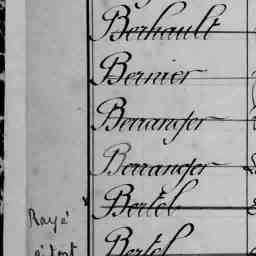 Berhault
Bernier
Berranger
Berranger
Bertel
Rayé
à tort
Bertel